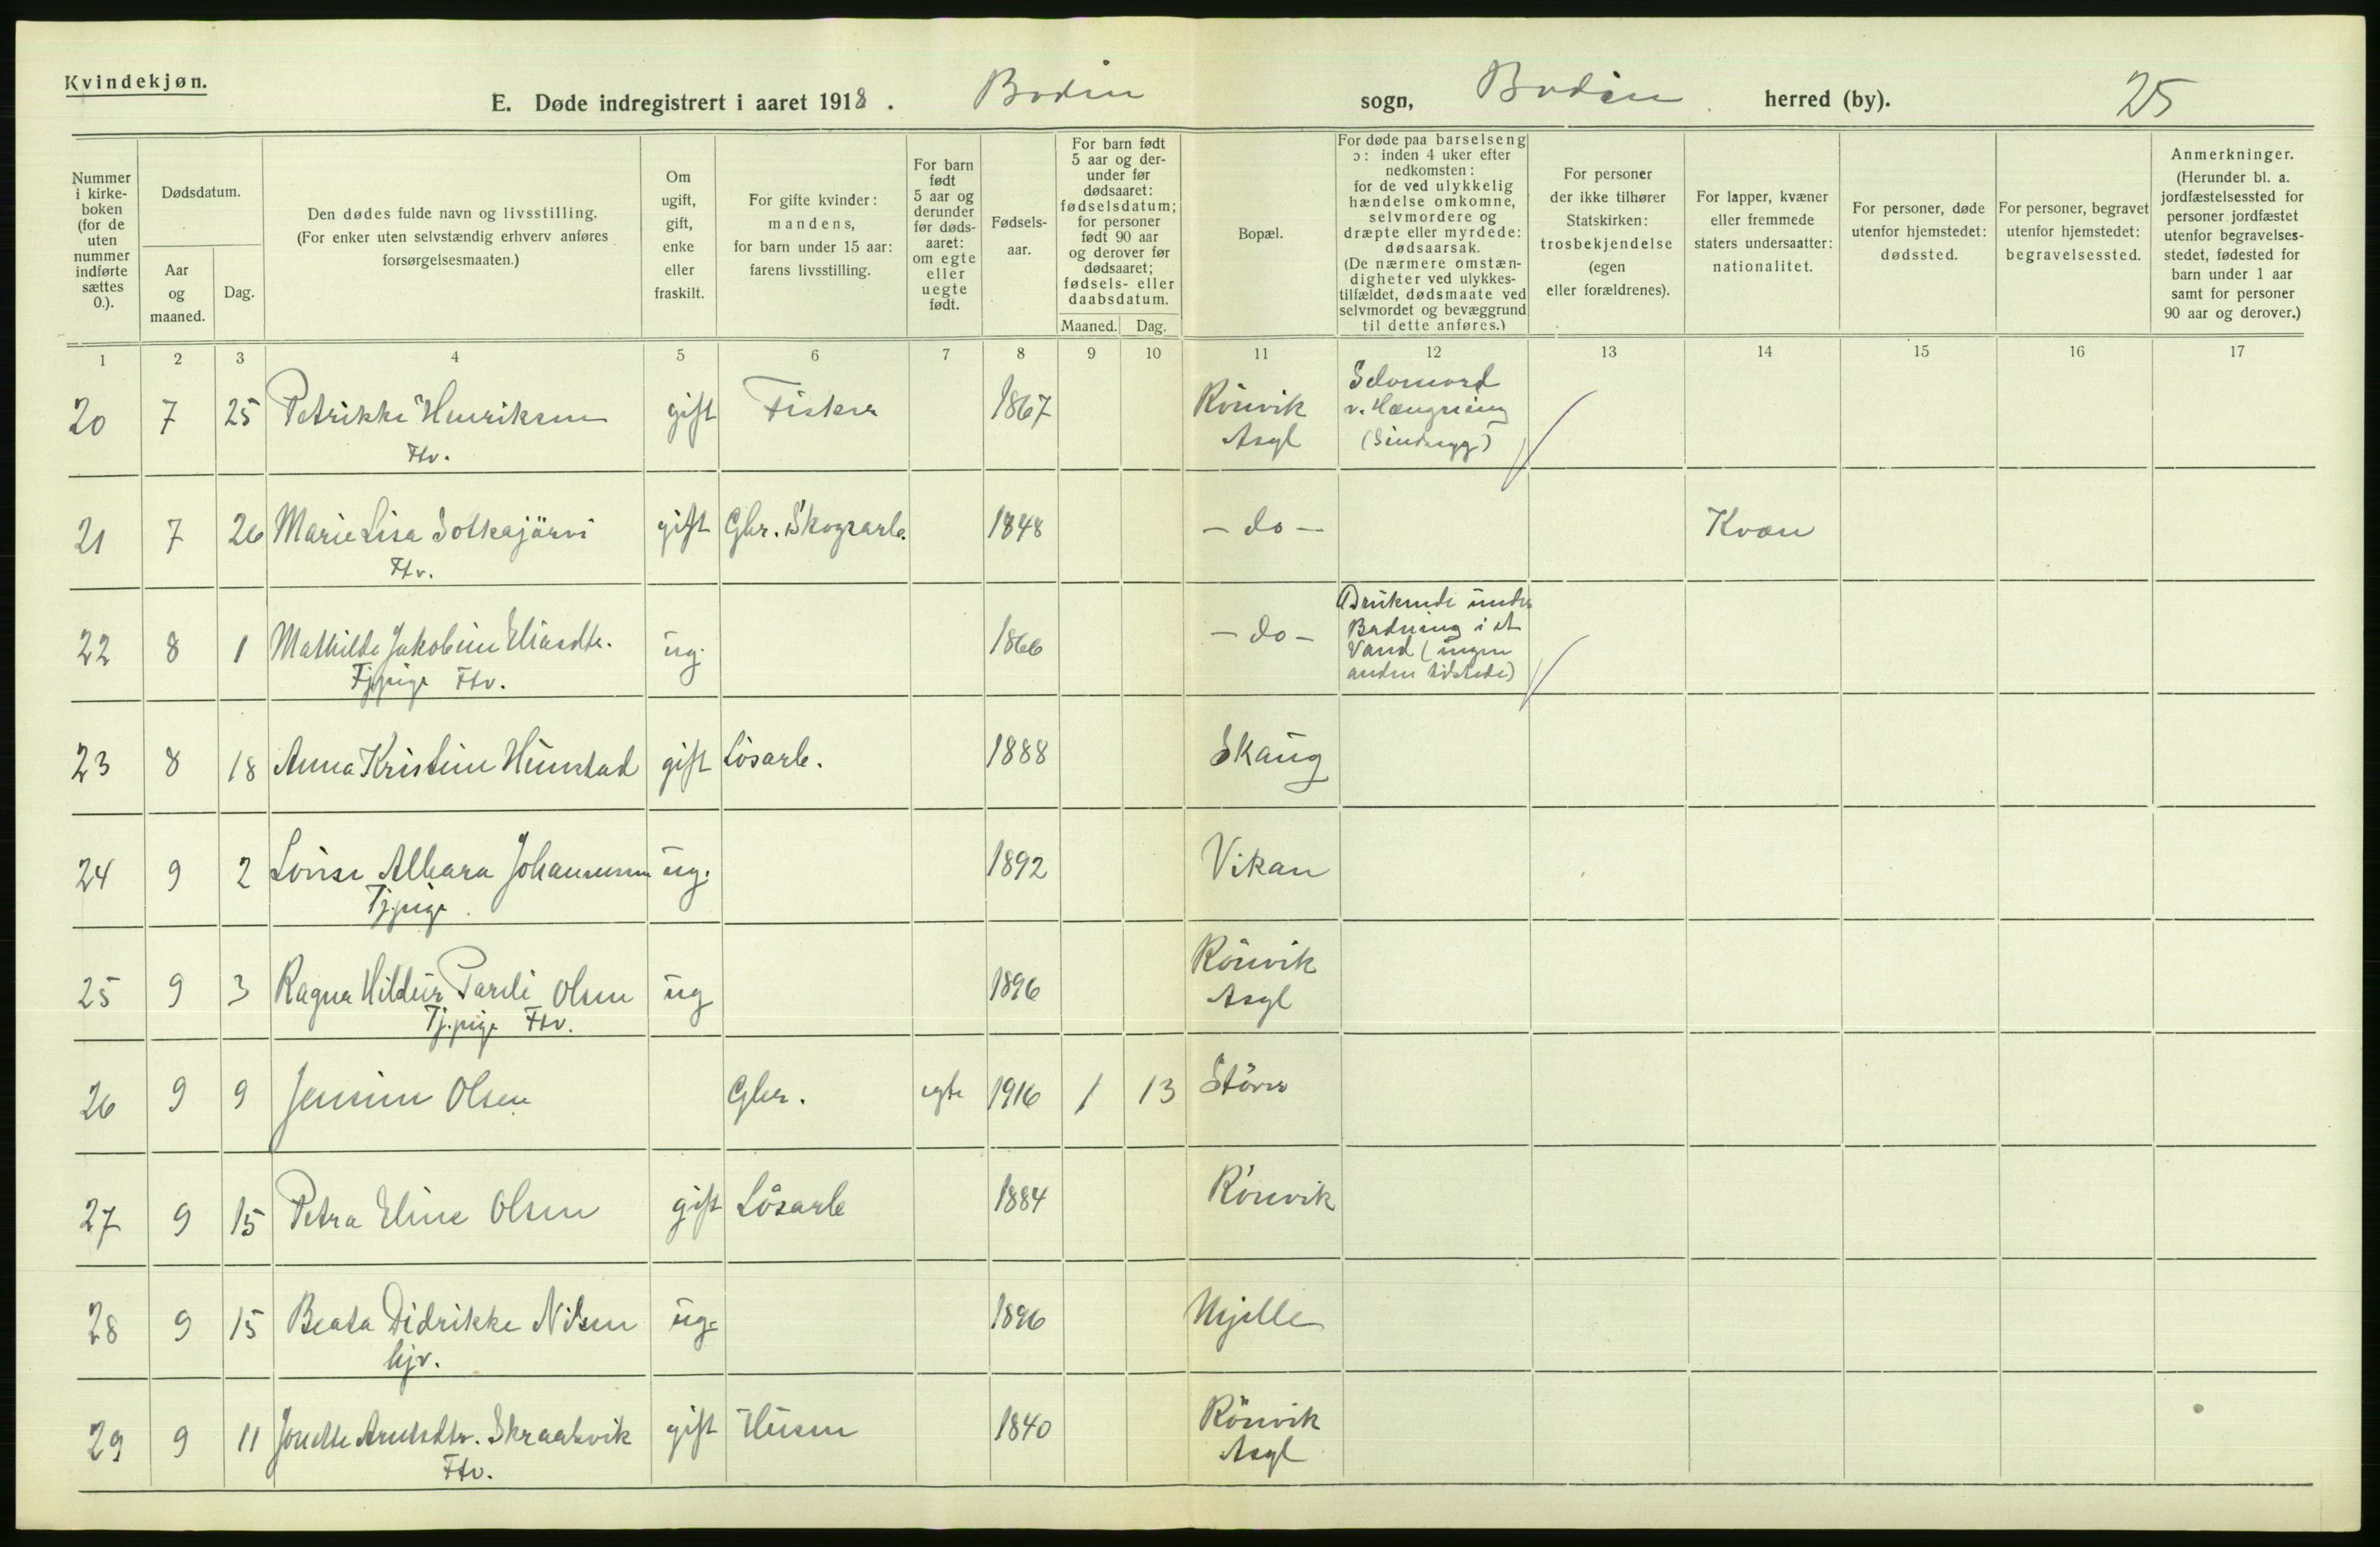 Kvindekjøn.
E. Døde indregistrert i aaret 1918. Bodin sogn, Bodin herred (by). 25
Nummer i kirkeboken (for de uten nummer indførte sættes 0.).
Dødsdatum.
Aar og maaned.
Dag.
Den dødes fulde navn og livsstilling.
(For enker uten selvstændig erhverv anføres
forsørgelsesmaaten.)
Om ugift, gift, enke eller fraskilt.
For gifte kvinder:
mandens,
for barn under 15 aar:
farens livsstilling.
For barn født 5 aar og derunder før dødsaaret: om egte eller uegte født.
Fødselsaar.
For barn født 5 aar og derunder før dødsaaret: fødselsdatum; for personer født 90 aar og derover før dødsaaret; fødsels- eller daabsdatum.
Maaned. Dag.
Bopæl.
For døde paa barselseng
ɔ: inden 4 uker efter
nedkomsten:
for de ved ulykkelig
hændelse omkomne,
selvmordere og
dræpte eller myrdede:
dødsaarsak.
(De nærmere omstæn-
digheter ved ulykkes-
tilfældet, dødsmaate ved
selvmordet og bevæggrund
til dette anføres.)
For personer
der ikke tilhører
Statskirken:
trosbekjendelse
(egen
eller forældrenes).
For lapper, kvæner
eller fremmede
staters undersaatter:
nationalitet.
For personer, døde
utenfor hjemstedet:
dødssted.
For personer, begravet
utenfor hjemstedet:
begravelsessted.
Anmerkninger.
(Herunder bl. a.
jordfæstelsessted for
personer jordfæstet
utenfor begravelses-
stedet, fødested for
barn under 1 aar
samt for personer
90 aar og derover.)
1 2 3 4 5 6 7 8 9 10 11 12 13 14 15 16 17
20 7 25 Petrikke Henriksen gift Fisker 1867 Rönvik Asyl
Ftv.
Selvmord
v. Hængning
(Sindssyg)
21 7 26 Marie Lisa Sotkajärvi gift Gbr. Skogsarb. 1848 - do - Kvæn
Ftv.
22 8 1 Mathilde Jakobine Eliasdtr. ug. 1866 - do -
Tj.pige Ftv.
Druknede under
Badning i et
Vand (ingen
anden tilstede)
23 8 18 Anna Kristine Hunstad gift Løsarb. 1888 Skaug
24 9 2 Lovise Albara Johansen ug. 1892 Vikan
Tj.pige
25 9 3 Ragna Hildur Olsen ug 1896 Rönvik Asyl
Tj.pige Ftv.
26 9 9 Jensine Olsen Gbr. egte 1916 1 13 Støver
27 9 15 Petra Eline Olsen gift Løsarb 1884 Rönvik
28 9 15 Beata Didrikke Nilsen ug. 1896 Mjelle
hjv.
29 9 11 Jonette Arntsdtr. Skraalsvik gift Husm 1840 Rönvik Asyl
Ftv.